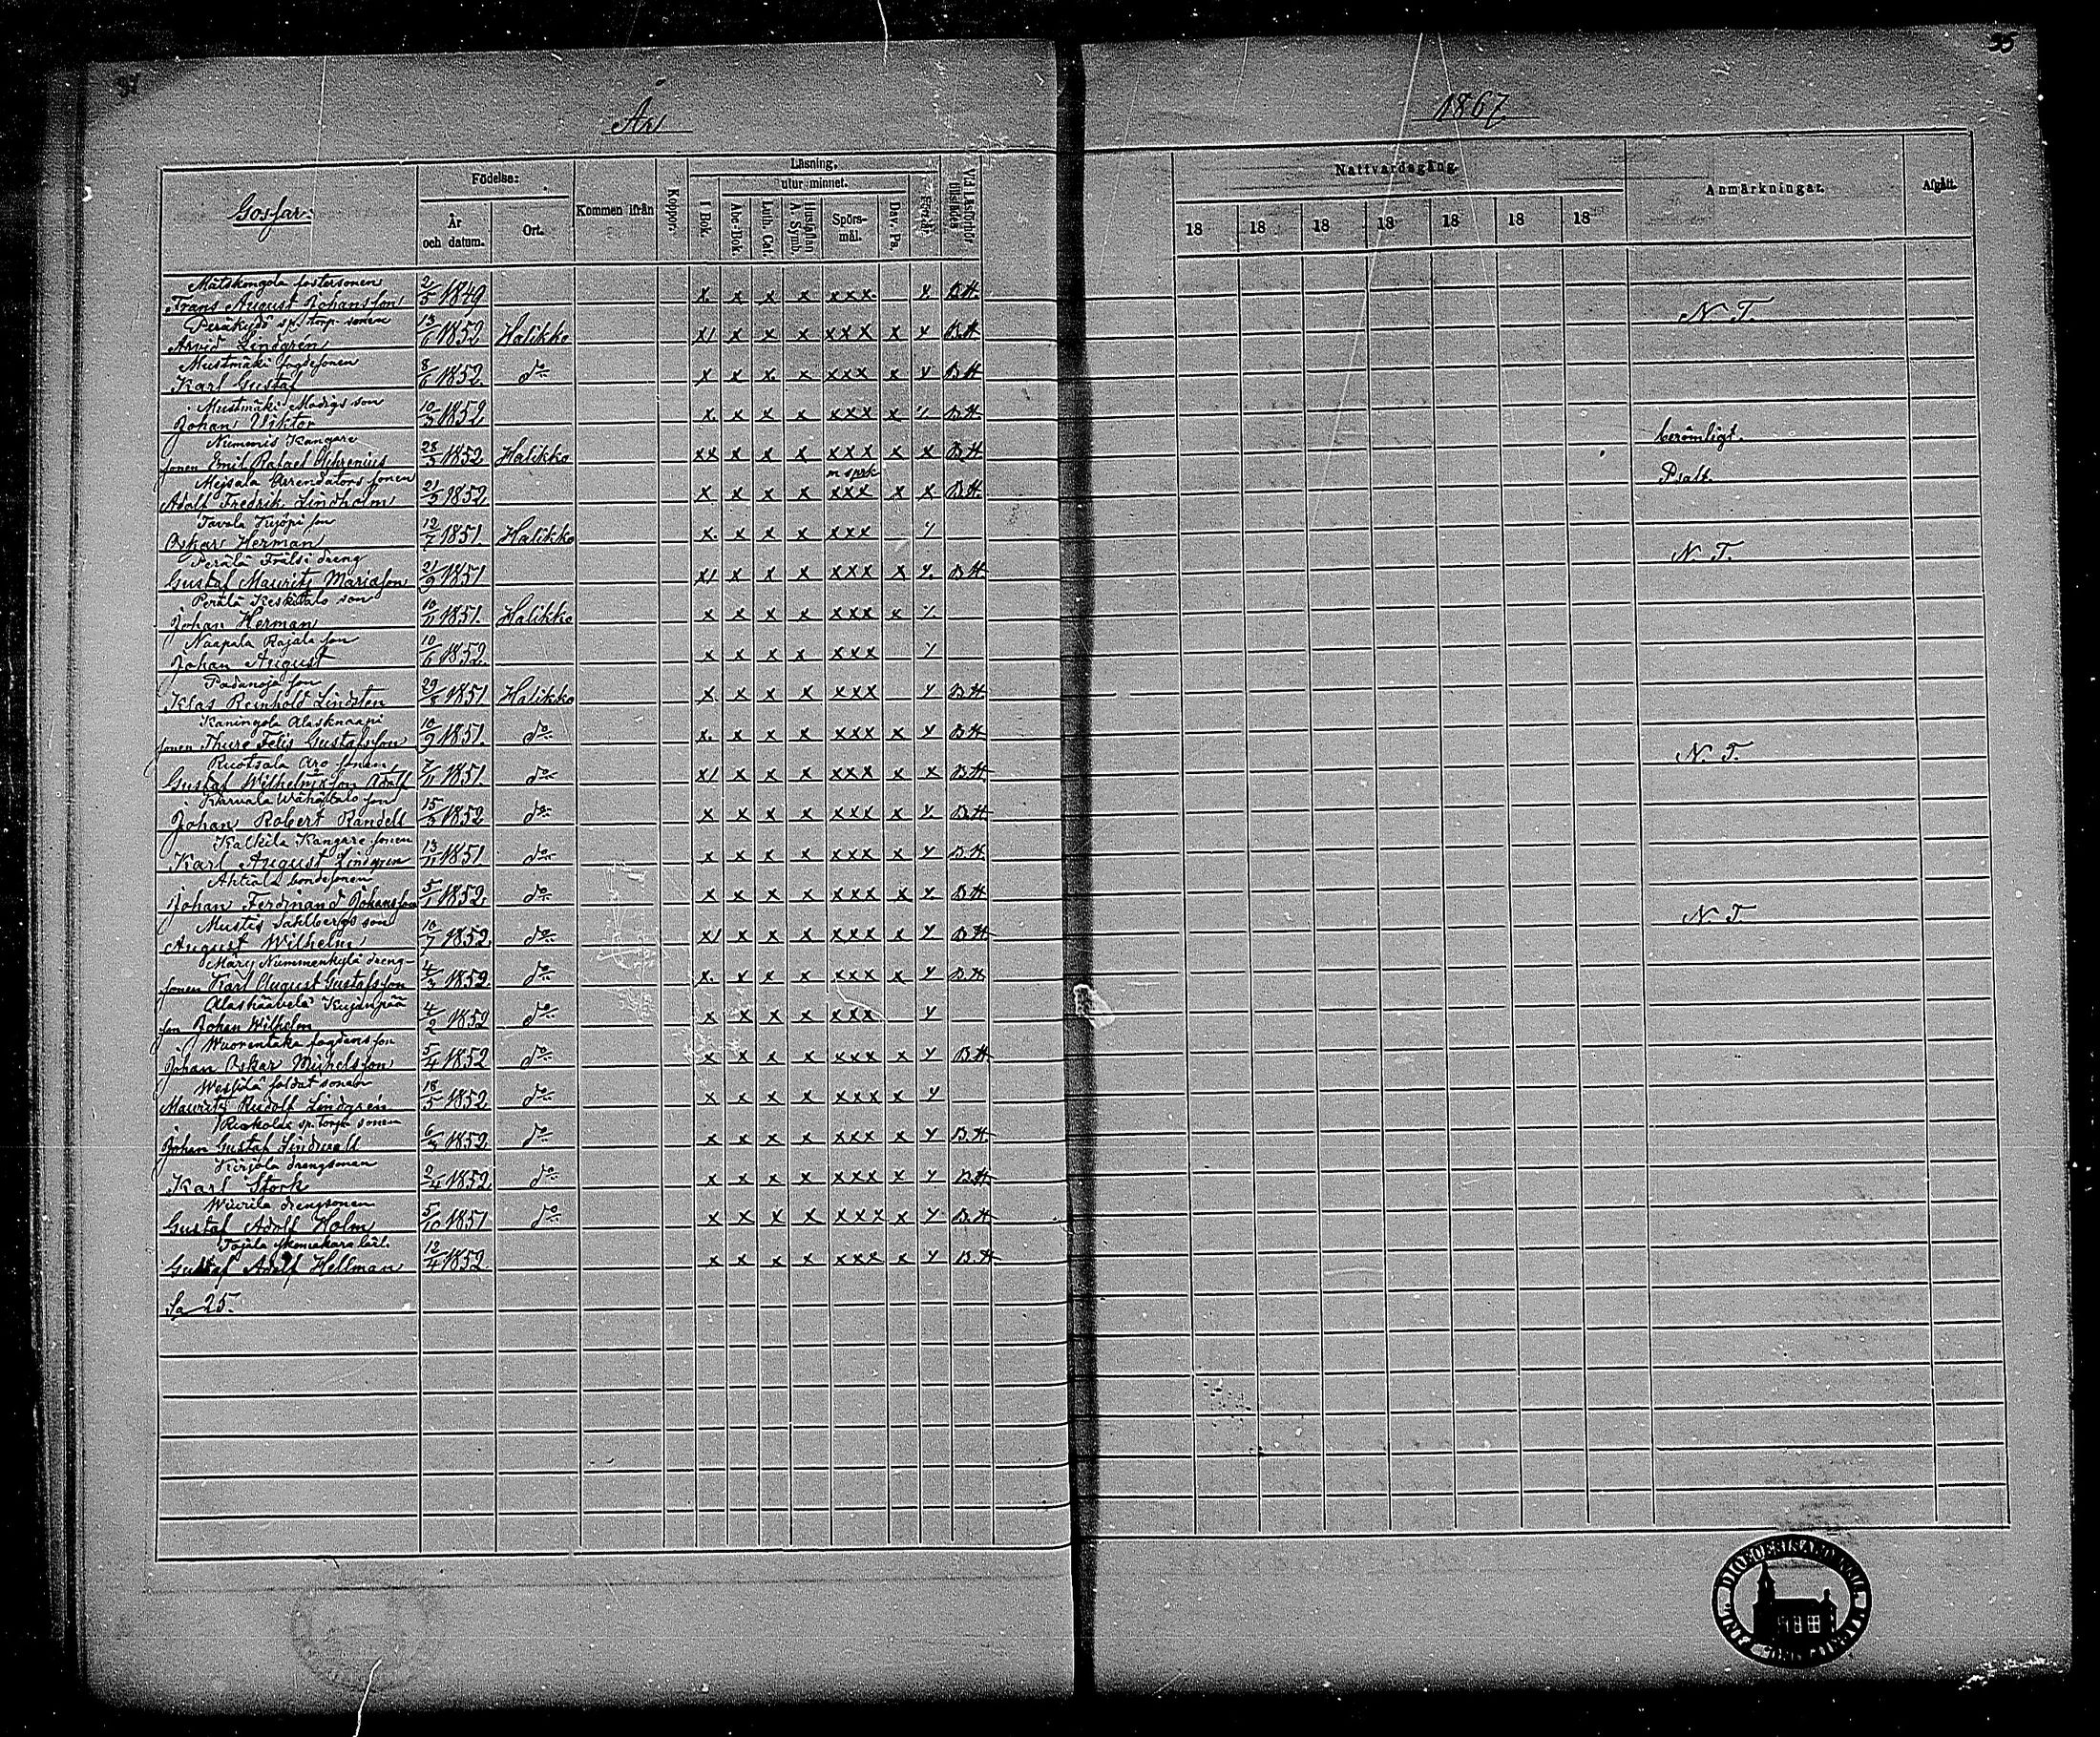 34
35
År
1867
Gossar.
Födelse:
År och datum.
Ort.
Kommen ifrån
Koppor.
Läsning.
utur minnet.
I Bok.
Abc-Bok.
Luth. Cat.
Hustaflan A. Symb.
Spörs-mål.
Dav. Ps.
Vid Läsförhör tillstädes
Nattvardsgång.
18 18 18 18 18 18 18
Anmärkningar.
Afgått.
Mätskongola fostersonen
Frans August Johansson 2/5 1849 x x x x xxx B.H.
Peräkylä sp. torp. sonen N. T.
Arvid Lindgren 13/6 1852 Halikko x/ x x x xxx x B.H.
Mustmäki fogdesonen
Karl Gustaf 8/6 1852 do x x x x xxx x B.H.
Mustmäki Modigs son
Johan Viktor 10/3 1852 x x x x xxx x B.H.
Nummis Kangare berömligt.
sonen Emil Rafael 28/3 1852 Halikko xx x x x xxx x x B.H.
Mejsala Arrendators sonen Psalt.
Adolf Fredrik Lindholm 21/5 1852 x x x x xxx x x B.H.
Tavola son
Oskar Herman 12/7 1851 Halikko x x x x xxx
Perälä dreng N. T.
Gustaf Mauritz Mariason 21/9 1851 x/ x x x xxx x B.H.
Perälä Keskitalo son
Johan Herman 10/11 1851 Halikko x x x x xxx x
Naapala Rajala son
Johan August 10/6 1852 x x x x xxx
Padanoja son
Klas Reinhold Lindsten 29/8 1851 Halikko x x x x xxx B.H.
Kaningola Alasknaapi
sonen Thure Felis Gustafsson 10/9 1851 do x x x x xxx x B.H.
Ruotsala Aro sonen N. T.
Gustaf Wilhelmsson Adolf 7/11 1851 do x/ x x x xxx x x B.H.
Karvala Wähätalo son
Johan Robert Randell 15/3 1852 do x x x x xxx x B.H.
Kalkila Kangare sonen
Karl August Lindgren 13/11 1851 do x x x x xxx x B.H.
Ahtiala bondesonen
Johan Ferdinand Johansson 5/1 1852 do x x x x xxx x B.H.
Mustis Sahlbergs son N. T.
August Wilhelm 10/7 1852 do x/ x x x xxx x B.H.
Märy Nummenkylä dreng-
sonen Karl August Gustafsson 4/3 1852 do x x x x xxx x B.H.
Alaskäävelä Kujanpää
son Johan Wilhelm 4/2 1852 do x x x x xxx
Wuorentaka fogdens son
Johan Oskar Michelsson 5/4 1852 do x x x x xxx x B.H.
soldat sonen
Mauritz Rudolf Lindgrén 18/5 1852 do x x x x xxx x
sp. torp sonen
Johan Gustaf Lindwall 6/3 1852 do x x x x xxx x B.H.
Kirjola drengsonen
Karl Stock 2/4 1852 do x x x x xxx x B.H.
Wiurila drengsonen
Gustaf Adolf Holm 5/10 1851 do x x x x xxx x B.H.
Tojila skomakare lärl.
Gustaf Adolf Hellman 12/4 1852 x x x x xxx x B.H.
Sa 25.